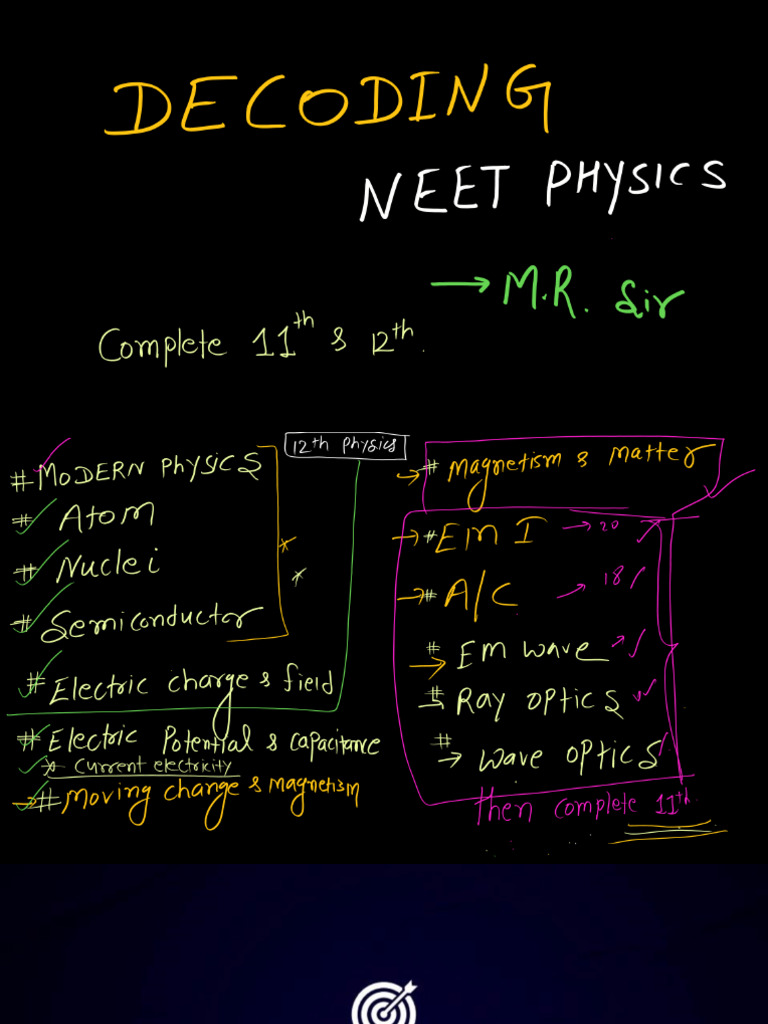 DECODING
NEET PHYSICS
→ M.R. Sir
Complete 11th & 12th.
12th Physics
# MODERN PHYSICS
# Atom
# Nuclei
# Semiconductor
# Electric charge & field
# Electric Potential & capacitance
* Current electricity
→ # Moving charge & magnetism
→ # Magnetism & Matter
→ # EM I → 20
→ # A/C → 18
# → EM wave
# → Ray optics
# → wave optics
then complete 11th.